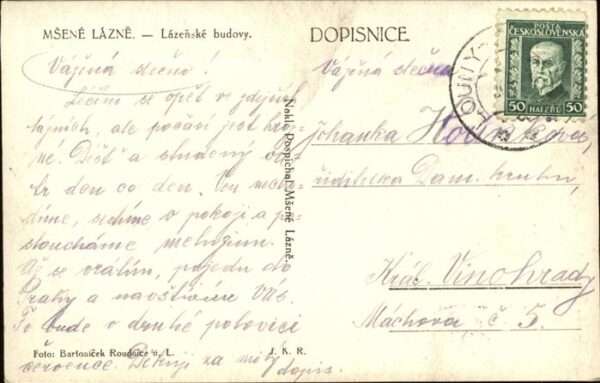 MŠENÉ LÁZNĚ. — Lázeňské budovy.
DOPISNICE.
POŠTA
ČESKOSLOVENSKÁ
50 HALÉŘŮ 50
Vážená slečno!
Léčím se opět ve zdejších
lázních, ale počasí jest
Déšť a studený
den co den. Ven
, sedíme v pokoji a
posloucháme
Až se vrátím, pojedu do
Prahy a navštívíme Vás.
To bude v druhé polovici
července. Děkuji za
dopis.
Nakl. Pospíchal Mšené Lázně.
Vážená slečna
Johanka
ředitelka Dam.
Král. Vinohrady
Máchova č. 5.
Foto: Bartoníček Roudnice n. L.
J. K. R.